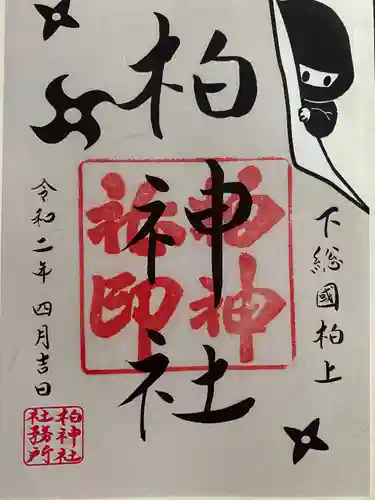 下総國柏上
柏神社
柏神
社印
令和二年四月吉日
柏神社
社務所